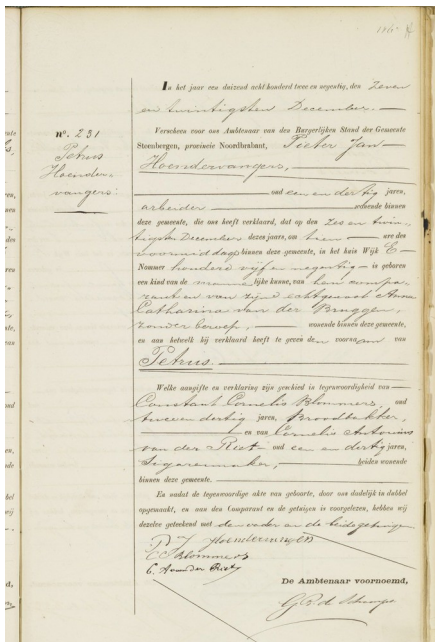 116
nº. 231
Petrus
Hoender-
vangers.
In het jaar een duizend acht honderd twee en negentig, den Zeven
en twintigsten December.
Verscheen voor ons Ambtenaar van den Burgerlijken Stand der Gemeente
Steenbergen, provincie Noordbrabant, Pieter Jan
Hoendervangers,
oud een en dertig jaren,
arbeider wonende binnen
deze gemeente, die ons heeft verklaard, dat op den Zes en twin-
tigsten December dezes jaars, om tien ure des
voormiddags binnen deze gemeente, in het huis Wijk E
Nommer honderd vijf en negentig is geboren
een kind van de mannelijke kunne, van hem compa-
rant en van zijne echtgenoot Anna
Catharina van der Bruggen,
zonder beroep, wonende binnen deze gemeente,
en aan hetwelk hij verklaard heeft te geven den voornaam van
Petrus.
Welke aangifte en verklaring zijn geschied in tegenwoordigheid van
Constant Cornelis Blommers, oud
twee en dertig jaren, Broodbakker,
en van Cornelis Antonius
van der Riet oud een en dertig jaren,
Sigarenmaker, beiden wonende
binnen deze gemeente.
En nadat de tegenwoordige akte van geboorte, door ons dadelijk in dubbel
opgemaakt, en aan den Comparant en de getuigen is voorgelezen, hebben wij
dezelve geteekend met den vader en de beide getuigen
P. J. Hoendervangers
C. Blommers
C. A van der Riet
De Ambtenaar voornoemd,